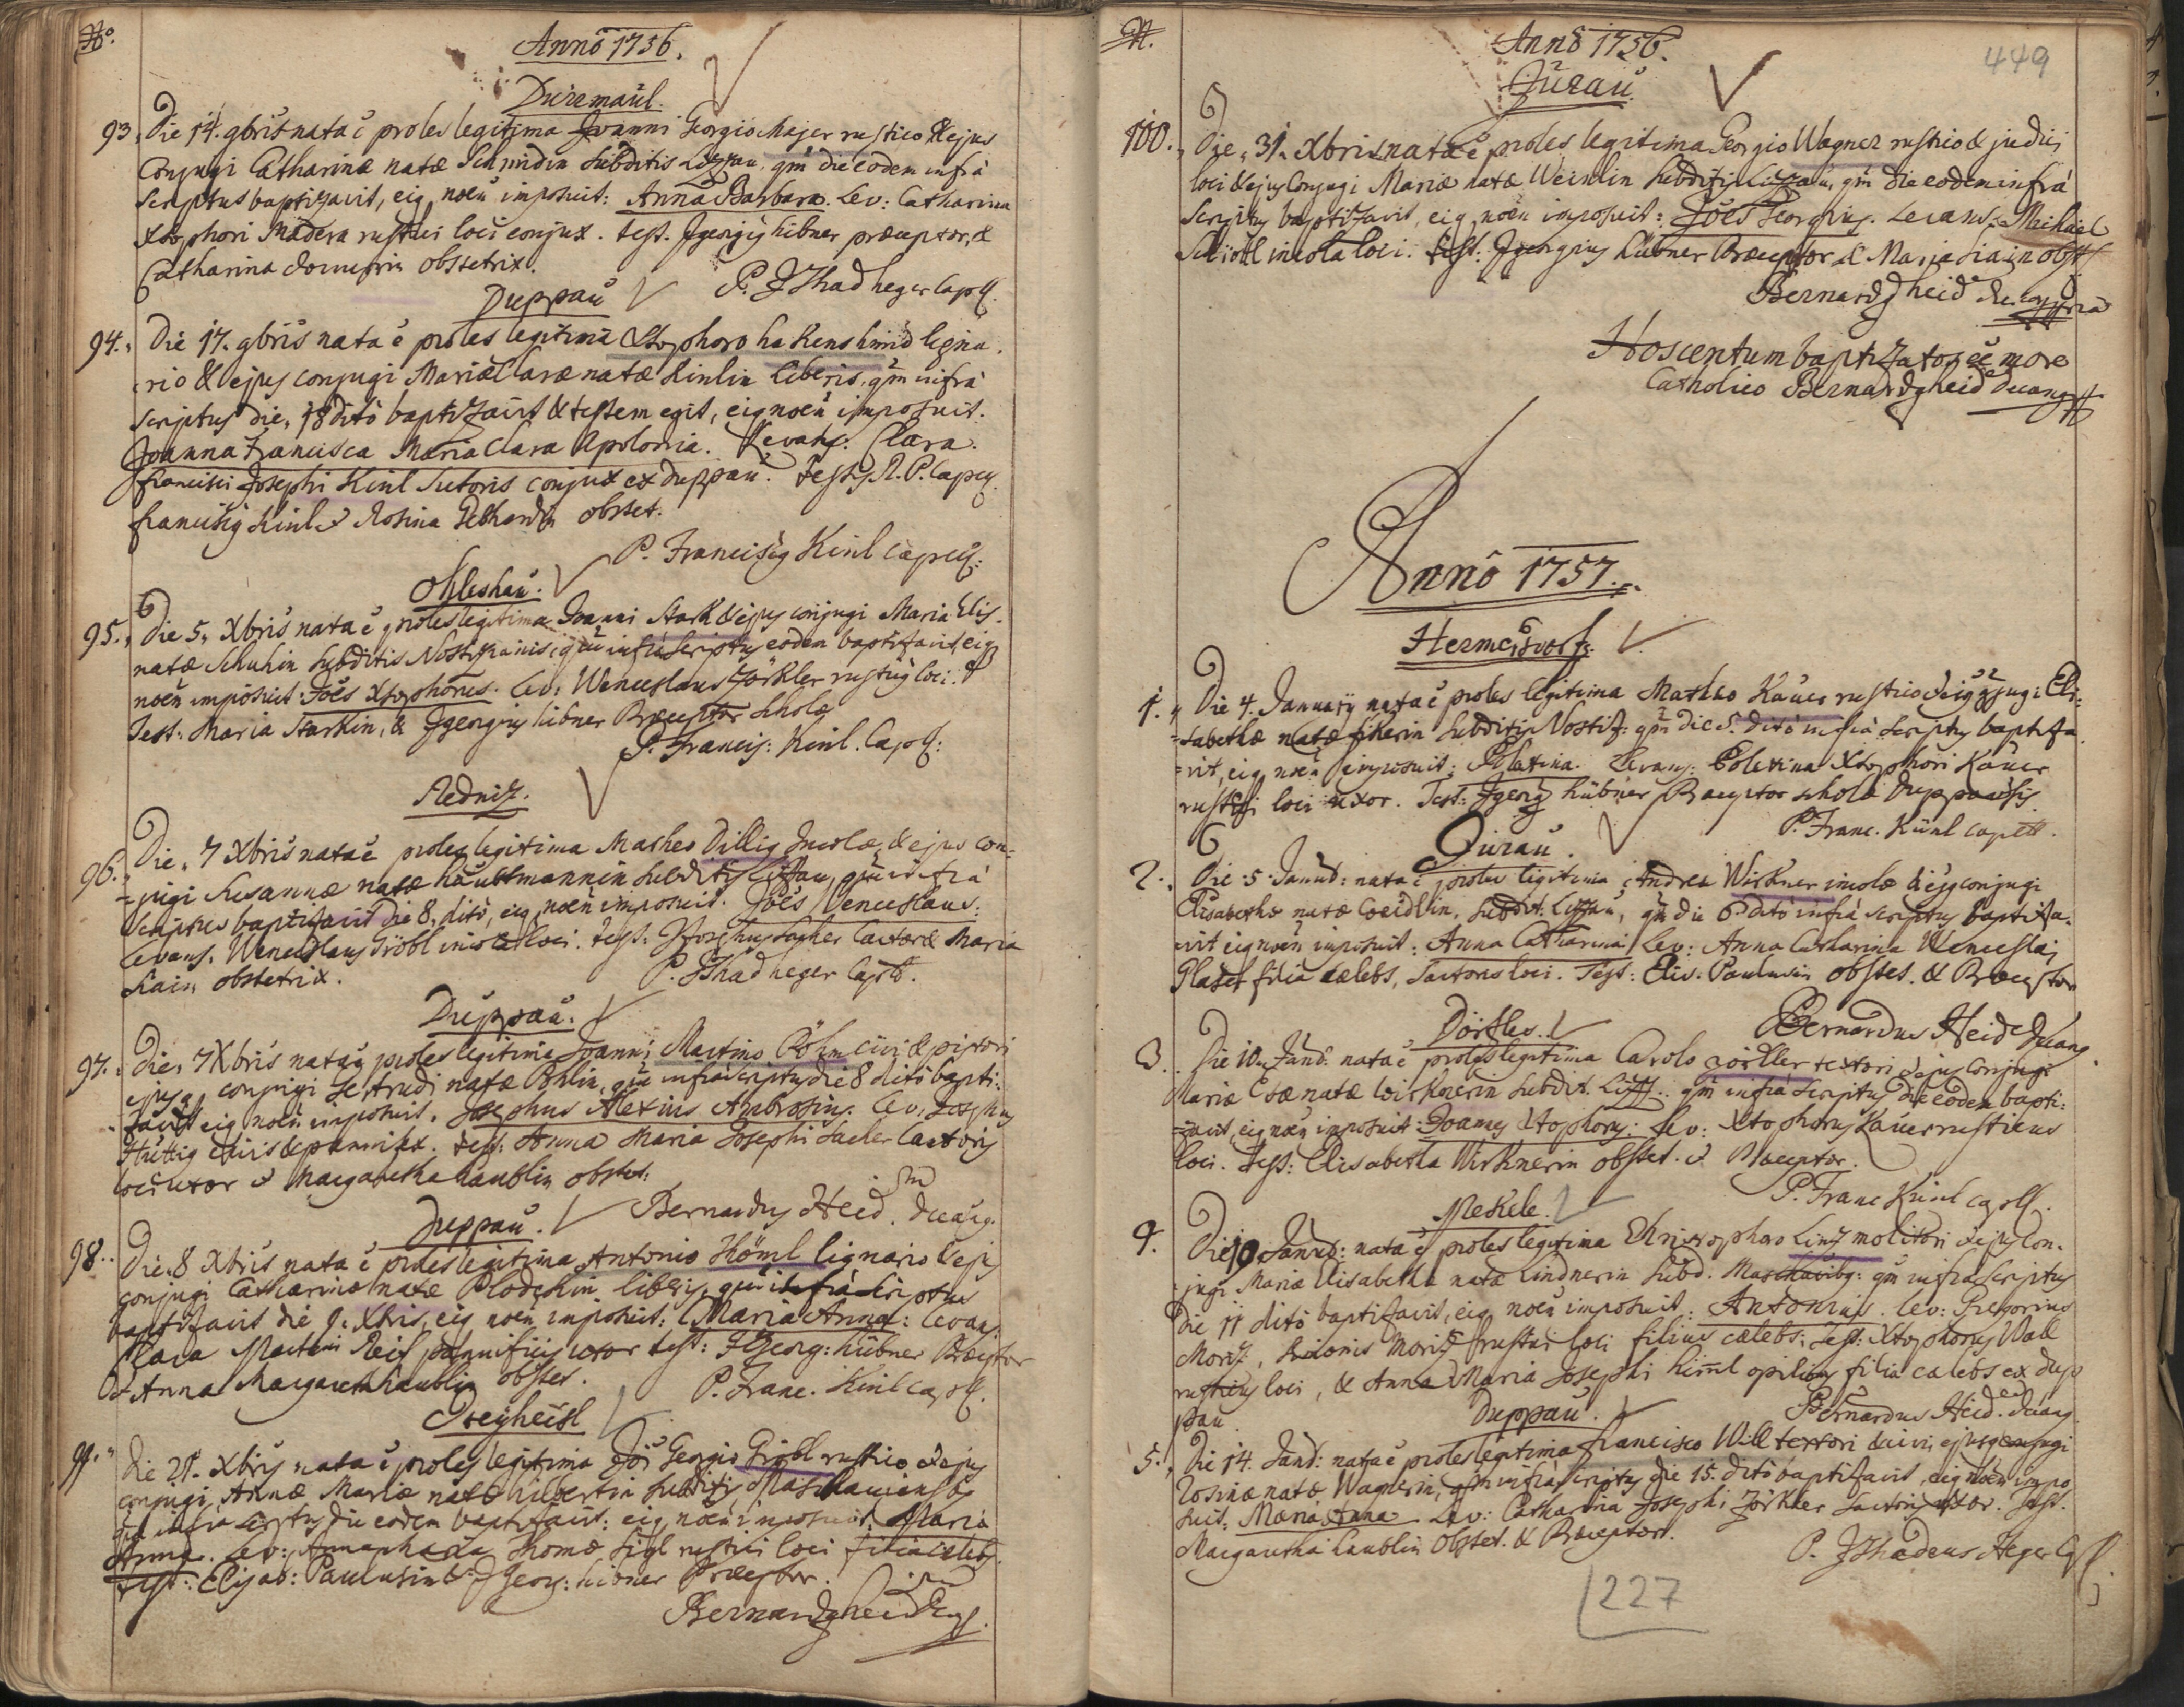 No.
Anno 1756.
Dürmaul.
93. Die 14. 9bris nata ē proles legitima Joanni Georgio Majer rustico & ejus
Conjugi Catharinæ natæ Schmidin subditis Lizzau, qm̄ die eodem infrà
scriptus baptizavit, eiq noēn imposuit: Anna Barbara. Lev: Catharina
Xtophori Madera rustici loci conjux. test. Jgeorgiq hibner præceptor, &
Catharina obstetrix.
P. JThad heger Capll.
Duppau
94. Die 17. 9bris nata ē proles legitima Xtophoro hakenshmid ligna-
rio & ejus conjugi Mariæ Claræ natæ Kinlin liberis, qm̄ infrà
scriptus die 18 ditò baptizavit & testem egit, eiq noēn imposuit.
Joanna Francisca Maria Clara Apolonia. Levans. Clara
francisci Josephi Kinl Sutoris conjux ex duppau. Testes R. P. Capell.
franciscq Kinl & Rosina Gebhardin obstet.
P. Franciscq Kinl Capell:
Ohleshau.
95. Die 5. Xbris nata ē proles legitima Joanni Stark & ejus conjugi Maria Elis.
natæ Schuhin subditis Nostizianis, qm̄ infrà scriptus eodem baptizavit, eiq
noēn imposuit: Joēs Xtophorus. Lev: Wenceslaus Zörkler rustiq loci. &
Test: Maria Starkin, & Jgeorgius hibner Præceptor scholæ
P. Francis: Kinl. Capll:
Redniz.
96. Die 7 Xbris nata ē proles legitima Matheo Dillig Incolæ, & ejus con-
jugi Susannæ natæ haubtmannin subditis Lizzau, quē infrà
scriptus baptizavit die 8. ditò, eiq noēn imposuit. Joēs Wenceslaus:
Levans. Wenceslaus Gröbl incola loci. test: Josephus sacher Cantor & Maria
Hain obstetrix.
P. JThad heger Capll.
Duppau.
97. Die 7 Xbris natus proles legitima Joanni Martino Böhm civi & pistori
ejusq conjugi Gertrudi natæ Pohlin, quē infrà scriptus die 8 ditò bapti-
zavit eiq noēn imposuit. Josephus Alexius Ambrosius. Lev: Josephus
Hüttig civis & pannifex. test: Anna Maria Josephi Sacher Cantoris
loci uxor & Margaretha Laublin obstet:
Bernardus Heid. Decang.
Duppau.
98. Die 8 Xbris nata ē proles legitima Antonio Höml lignario & ejus
conjugi Catharinæ natæ Plodekin, liberis, quā infrà scriptus
baptizavit die 9. Xbris, eiq noēn imposuit: Maria Anna: Levans.
Clara Martini Reif pannificis uxor test: JGeorg: hübner Præceptor
Et Anna Margaretha Laublin obstet.
P. Franc. Kinl Capll.
Dreyheisl
99. Die 21. Xbris nata ē proles legitima Joī Georgio Gröbl rustico & ejus
conjugi Annæ Mariæ natæ hilbertin subditis
qm̄ infra scriptus die eodem baptizavit: eiq noēn imposuit. Maria
Anna. Lev: Thomæ Sigl rustici loci filia cælebs.
test: Elisab: Paulusin & JGeorg: hibner Præceptor.
Bernardq heid
N.
Anno 1756.
449
Jurau
100. Die 31. Xbris nata ē proles legitima Georgio Wagner rustico & judici
loci & ejus Conjugi Mariæ natæ Weinlin subditis Lizzau, qm̄ die eodem infrà
scriptus baptizavit, eiq noēn imposuit: Joēs Georgius. Levans: Michael
incola loci. test: Jgeorgius hübner Præceptor & Maria Hain obst.
Bernardq heid
Hos centum baptizatos ēē more
Catholico Bernardq heid Decang
Anno 1757.
Hermersdorf.
1. Die 4. January nata ē proles legitima Matheo Kauer rustico & ejus conjugi Eli-
sabethæ natæ subditis Nostiz: qm̄ die 5. ditò infrà scriptus baptiza-
vit, eiq noēn imposuit: Polexina. Levans: Polexina Xtophori Kauer
rustici loci uxor. Test: Jgeorg hübner Præceptor scholæ Duppauensis
P. Franc. Künl Capell.
Jurau.
2. Die 5. Januar: nata ē proles legitima Andrea Wirkner incolæ & ejus conjugi
Elisabethæ natæ Weidlin, subdit: Lizzau, qm̄ die 6 ditò infrà scriptus baptiza-
vit eiq noēn imposuit: Anna Catharina Lev: Anna Catharina Wenceslai
Glaser filia cælebs, sartoris loci. Test: Elis: Paulusin obstet. & Præceptor
Bernardus Heid Decang.
Dörfles.
3. Die 10. Januar. nata ē proles legitima Carolo Zördler textori & ejus Conjugi
Mariæ Evæ natæ Wirknerin subdit. Lizz: qm̄ infrà scriptus die eodem bapti-
zavit, eiq noēn imposuit: Joannes Xtophorus: Lev: Xtophorus Kauer rusticus
loci. Test: Elisabetha Wirknerin obstet. & Præceptor.
P. Franc Künl Capll.
Mekele.
4. Die 10 Januar: nata ē proles legitima Christophoro Linz molitori & ejus Con-
jugi Mariæ Elisabetha natæ Lindnerin subd. Maschauibg: qm̄ infrà scriptus
die 11 ditò baptizavit, eiq noēn imposuit: Antonius. Lev: Gregorius
Moriz, Moriz loci filius cælebs: Test: Xtophorus Wall
rusticus loci, & Anna Maria Josephi himl opilionis filia cælebs ex dup-
pau
Bernardus Heid. decang.
Duppau.
5. Die 14. Januar: nata ē proles legitima francisco Will textori & civi, ejusq conjugi
Rosinæ natæ Wagnerin, qm̄ infrà scriptus die 15. ditò baptizavit, eiq noēn impo-
suit: Maria Anna Lev: Catharina Josephi Zörkler sartoris uxor. Test.
Margaretha Laublin Obstet. & Præceptor.
P. JThadeus Heger Capll.
227